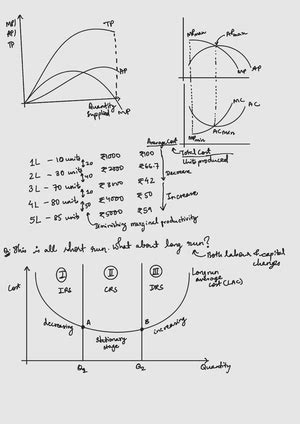 MP/
AP/
TP
TP
AP
MP
Quantity
Supplied
MPmax
APmax
MP
AP
MC
AC
ACmin
MPmin
Average Cost
Total Cost
Units produced
1L - 10 units ₹1000 ₹100
20
2L - 30 units ₹2000 ₹66.7
40
Decrease
3L - 70 units ₹3000 ₹42
10
4L - 80 units ₹4000 ₹50
Increase
5L - 85 units ₹5000 ₹59
Diminishing marginal productivity
Q: This is all short run. What about long run?
Both labour & capital
changes
Cost
I
IRS
II
CRS
III
DRS
Long run
average
cost (LAC)
decreasing
A
B
increasing
Stationary
stage
Q1
Q2
Quantity